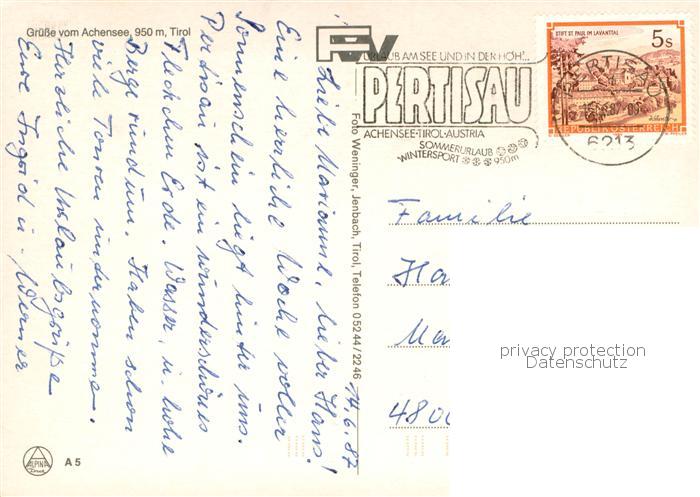 Grüße vom Achensee, 950 m, Tirol
14.6.87
Liebe Marianne, lieber Hans!
Eine herrliche Woche voller
Sonnenschein liegt hinter uns.
Pertisau ist ein wunderschönes
Fleckchen Erde. Wasser u. hohe
Berge rundum. Haben schon
viele Touren unternommen.
Herzliche Urlaubsgrüße
Eure Ingrid u. Werner
ALPINA
Druck
A 5
Foto Weninger, Jenbach, Tirol, Telefon 05244/2246
URLAUB AM SEE UND IN DER HÖH'...
PERTISAU
ACHENSEE-TIROL-AUSTRIA
SOMMERURLAUB
WINTERSPORT 950m
STIFT ST. PAUL IM LAVANTTAL
5 S
REPUBLIK ÖSTERREICH
PERTISAU
6213
Familie
Ha
Ma
480
privacy protection
Datenschutz